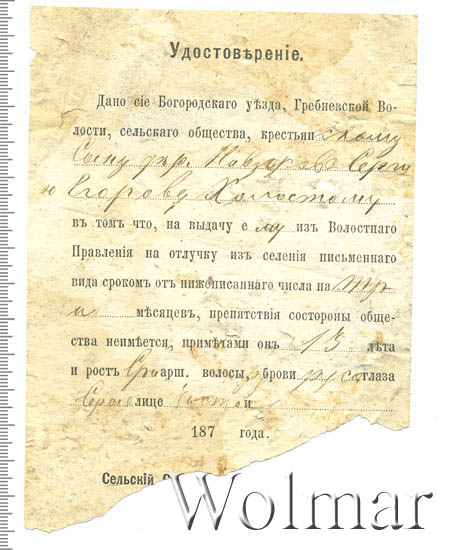 Удостовѣреніе.
Дано сіе Богородскаго уѣзда, Гребневской Во-
лости, сельскаго общества, крестьян скому
Сыну Серги
ю Егорову Холостому
въ томъ что, на выдачу е му изъ Волостнаго
Правленія на отлучку изъ селенія письменнаго
вида срокомъ отъ нижеписаннаго числа на тр
и мѣсяцевъ, препятствія состороны обще-
ства неимѣется, примѣтами онъ 13 лѣта
и ростъ арш. волосы, брови русо глаза
Серые лице чистои
187 года.
Сельскій С
Wolmar